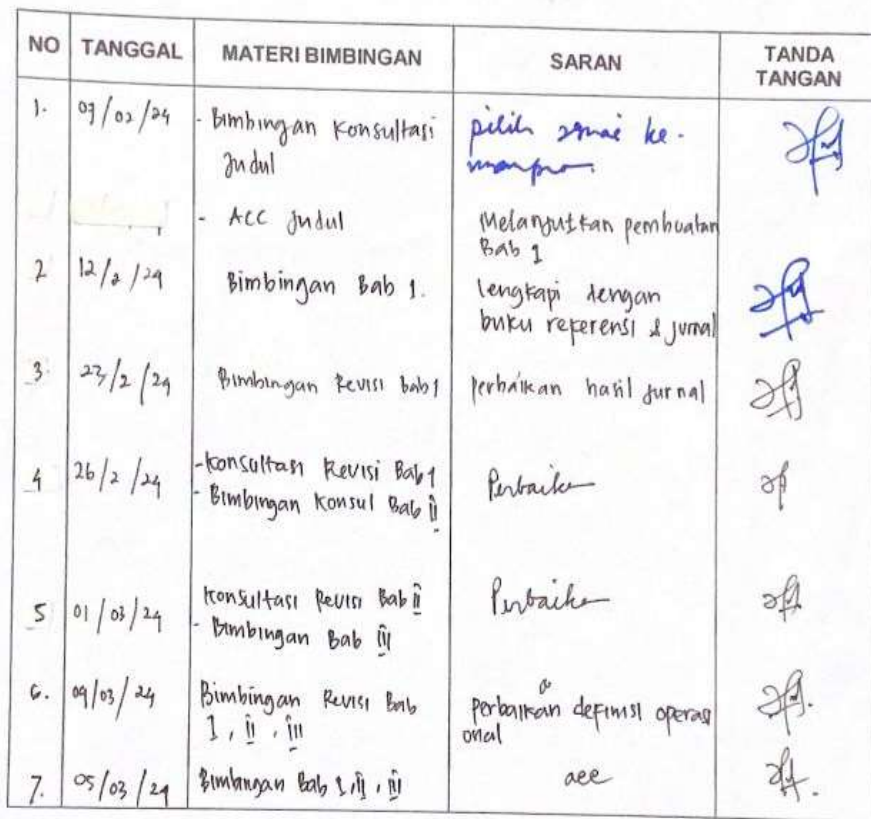 NO TANGGAL MATERI BIMBINGAN SARAN TANDA
TANGAN
1. 07/02/24 - Bimbingan Konsultasi pilih sesuai ke-
Judul
- ACC Judul Melanjutkan pembuatan
Bab 1
2 12/2/24 Bimbingan Bab 1. lengkapi dengan
buku referensi & jurnal
3. 23/2/24 Bimbingan Revisi bab 1 perbaikan hasil jurnal
4 26/2/24 - Konsultasi Revisi Bab 1 Perbaikan
- Bimbingan Konsul Bab II
5 01/03/24 Konsultasi Revisi Bab II Perbaikan
- Bimbingan Bab III
6. 04/03/24 Bimbingan Revisi Bab perbaikan definisi operasi
I, II, III onal
7. 05/03/24 Bimbingan Bab I, II, III acc